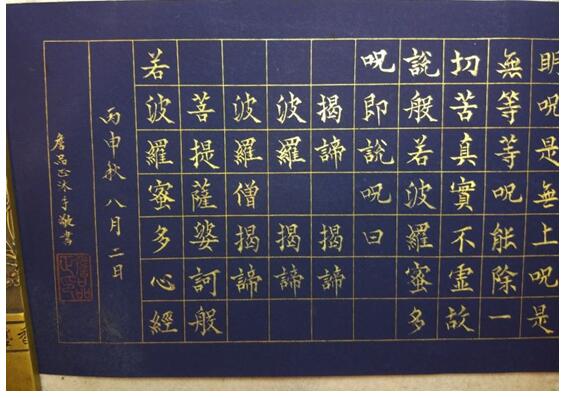 明呪是無上呪是
無等等呪能除一
切苦真實不虛故
說般若波羅蜜多
呪即說呪曰
揭諦 揭諦
波羅 揭諦
波羅僧揭諦
菩提薩婆訶般
若波羅蜜多心經
丙申秋八月二日
詹品正沐手敬書